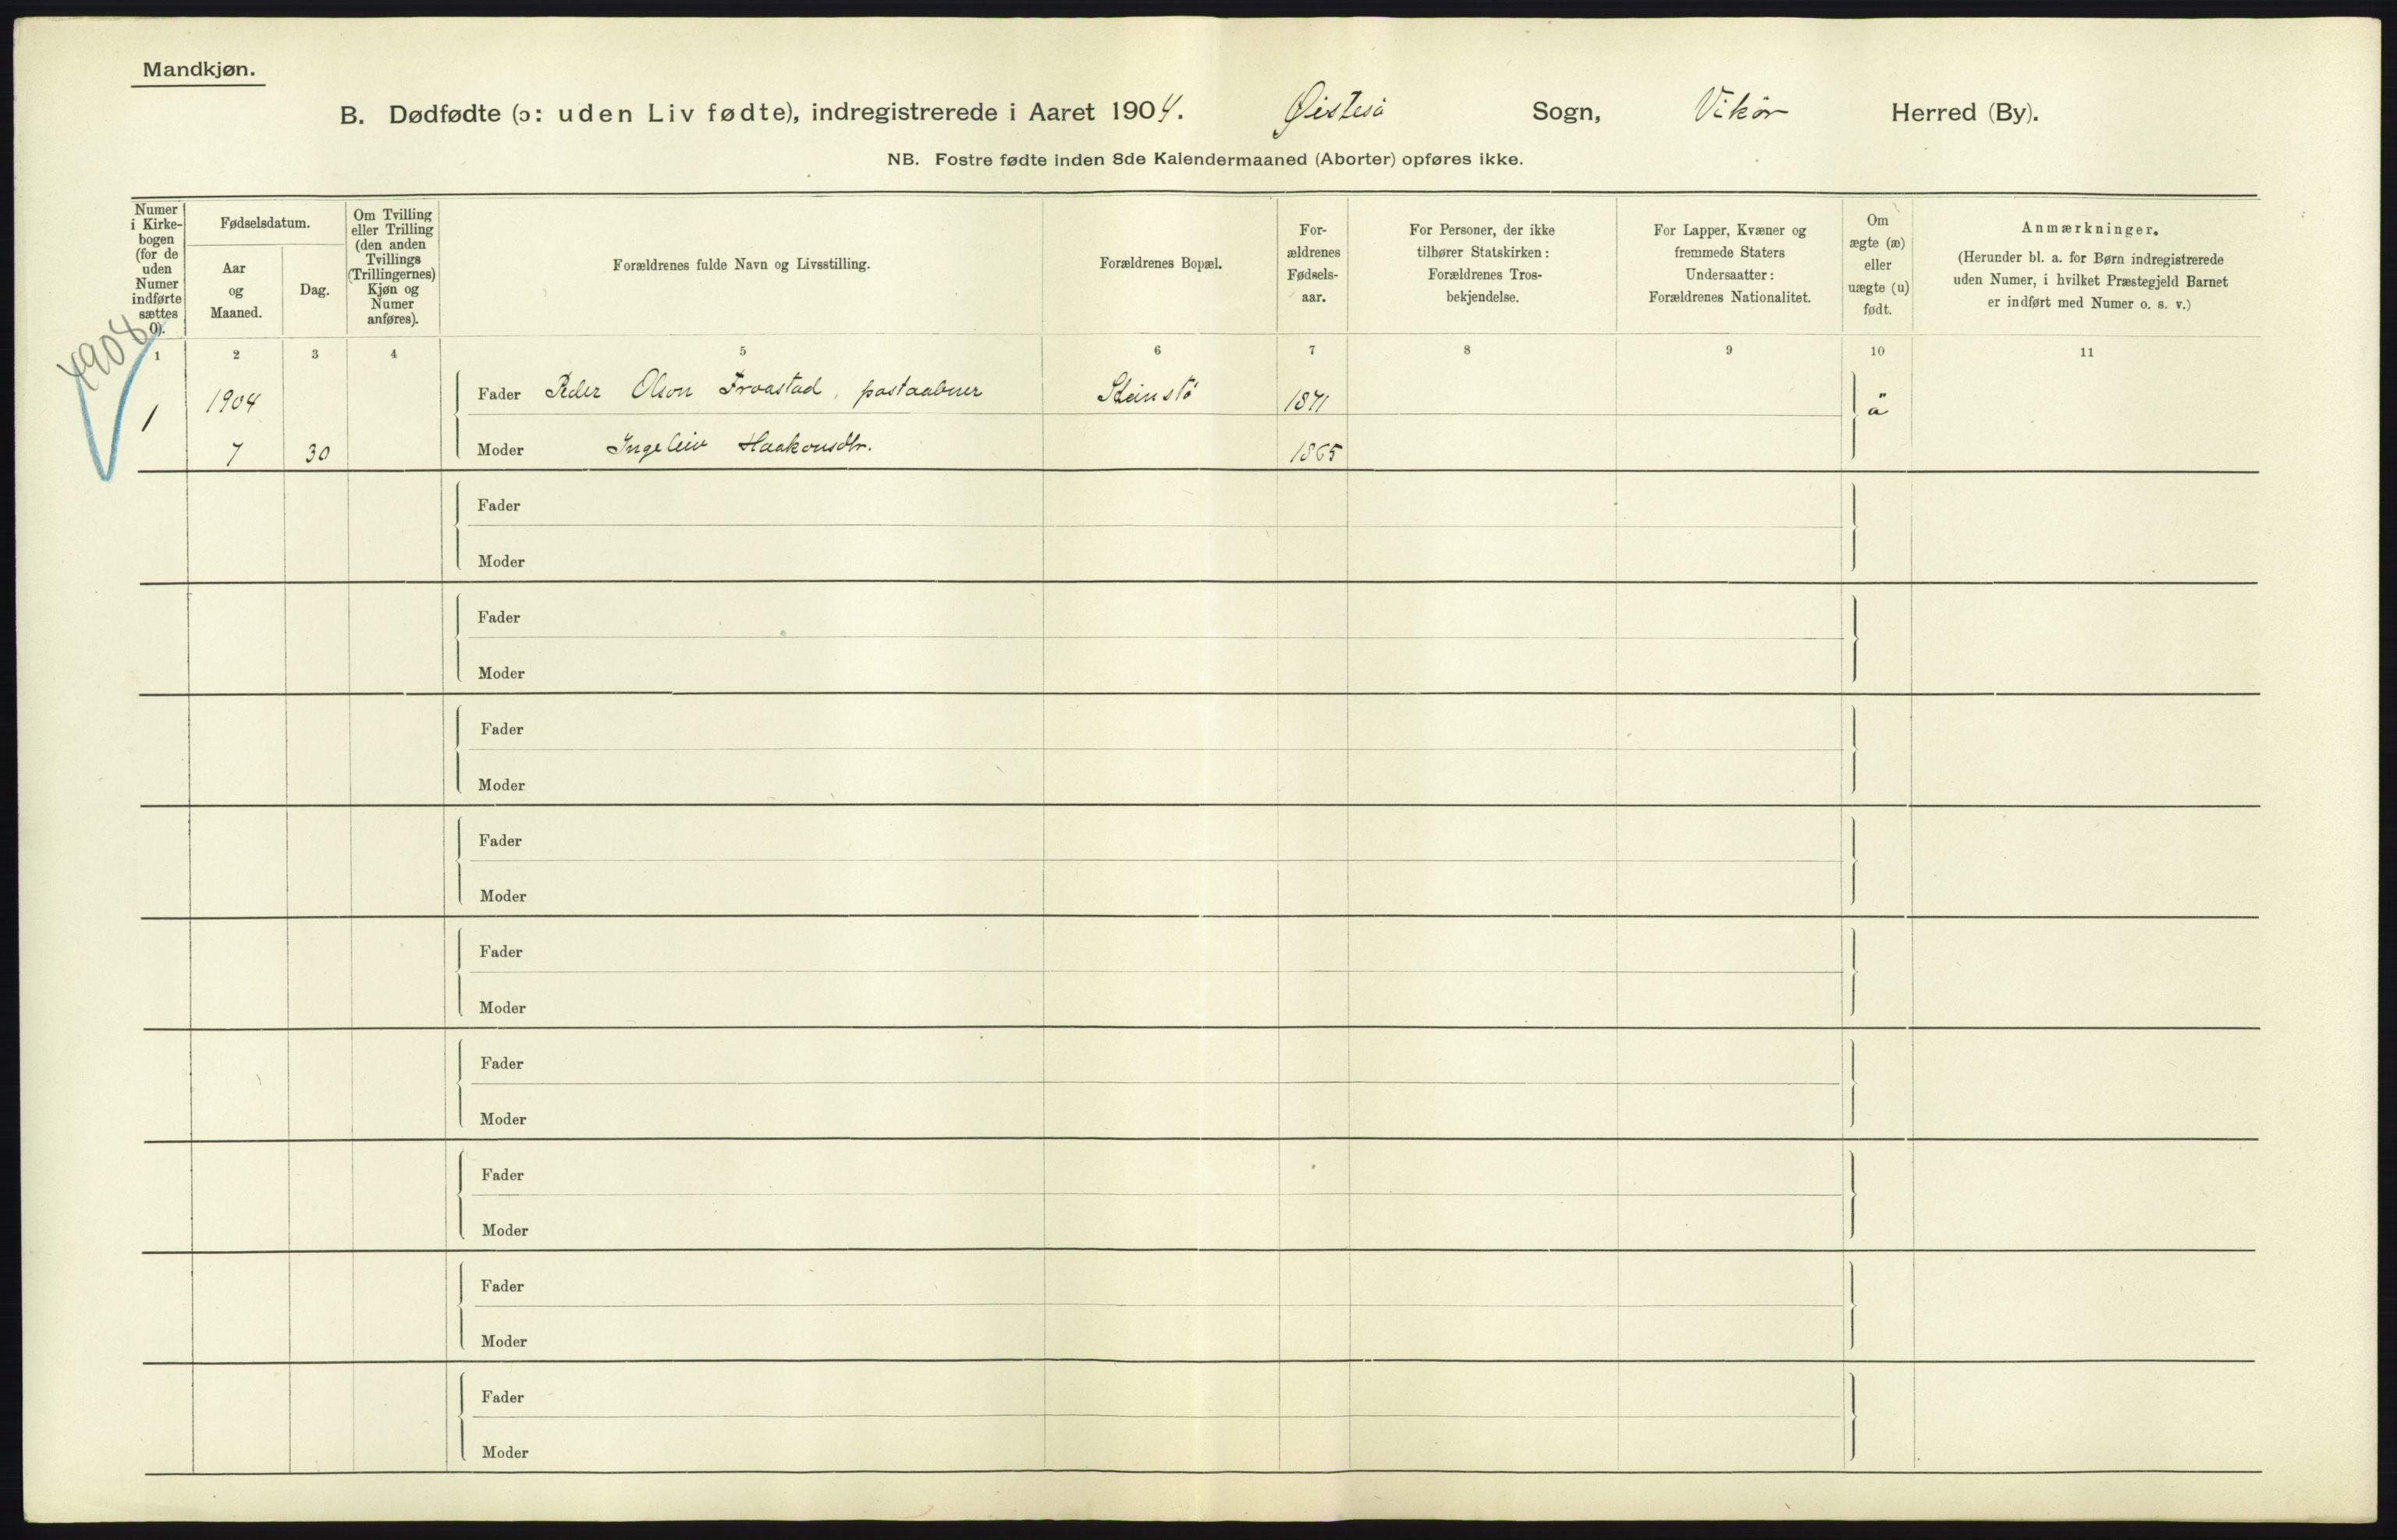 Mandkjøn.
B. Dødfødte (ɔ: uden Liv fødte), indregistrerede i Aaret 1904. Øistesö Sogn, Vikör Herred (By).
NB. Fostre fødte inden 8de Kalendermaaned (Aborter) opføres ikke.
Numer
i Kirke-
bogen
(for de
uden
Numer
indførte
sættes
0).
Fødselsdatum.
Aar
og
Maaned.
Dag.
Om Tvilling
eller Trilling
(den anden
Tvillings
(Trillingernes)
Kjøn og
Numer
anføres).
Forældrenes fulde Navn og Livsstilling.
Forældrenes Bopæl.
For-
ældrenes
Fødsels-
aar.
For Personer, der ikke
tilhører Statskirken:
Forældrenes Tros-
bekjendelse.
For Lapper, Kvæner og
fremmede Staters
Undersaatter:
Forældrenes Nationalitet.
Om
ægte (æ)
eller
uægte (u)
født.
Anmærkninger.
(Herunder bl. a. for Børn indregistrerede
uden Numer, i hvilket Præstegjeld Barnet
er indført med Numer o. s. v.)
4908
1 2 3 4 5 6 7 8 9 10 11
1 1904 Fader Peder Olson Froastad, postaabner Steinstö 1871 ä
7 30 Moder Ingeleiv Haakonsdtr. 1865
Fader
Moder
Fader
Moder
Fader
Moder
Fader
Moder
Fader
Moder
Fader
Moder
Fader
Moder
Fader
Moder
Fader
Moder